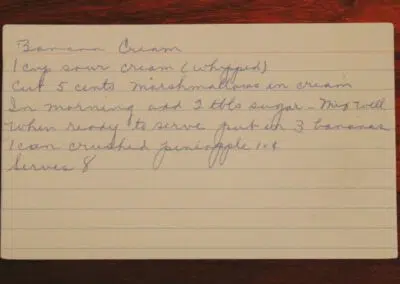 Banana Cream
1 cup sour cream (whipped)
Cut 5 cents marshmallows in cream
In morning add 2 tbls sugar - Mix well
When ready to serve put in 3 bananas
1 can crushed pineapple 10¢
Serves 8